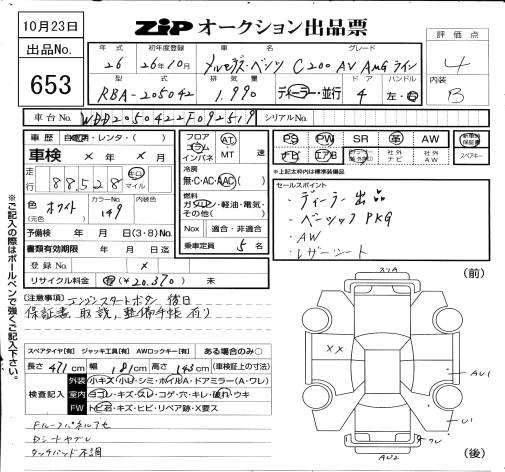 10月23日
ZIP オークション出品票
出品No.
653
評価点
4
内装
B
年式
26
初年度登録
26年10月
車名
メルセデス・ベンツ C200 AV AMGライン
グレード
型式
RBA-205042
排気量
1.990
ディーラー・並行
ドア
4
ハンドル
左・右
車台No.
WDD2050422F092519
シリアルNo.
車歴 自家用・レンタ・( )
車検 × 年 × 月
走行
88,528
キロ
マイル
色
(元色)
ホワイト
カラーNo.
149
内装色
予備検 年 月 日(3・8)No.
書類有効期限 年 月 日迄
登録No. ×
リサイクル料金 有(¥20.370) 未
フロア
コラム
インパネ
AT
MT 速
冷房
無・C・AC・AAC
燃料
ガソリン・軽油・電気・
その他( )
Nox 適合・非適合
乗車定員 5 名
PS PW SR 革 AW
新車時保証書
ナビ エアB
社外ナビ
社外AW
スペアキー
*上記太枠内は標準装備品
セールスポイント
・ディーラー出品
・ベーシックPKG
・AW
・レザーシート
[注意事項] エンジンスタートボタン 後日
保証書、取説、整備手帳 有り
スペアタイヤ[有] ジャッキ工具[有] AWロックキー[有] ある場合のみ○
長さ 471 cm 幅 181 cm 高さ 143 cm (車検証上の寸法)
検査記入
外装 小キズ・小凹・シミ・ホイルA・ドアミラー(A・ワレ)
室内 ヨゴレ・キズ・スレ・コゲ・穴・キレ・破れ・ウキ
FW トビ石・キズ・ヒビ・リペア跡・X要ス
Fルーフパネルアセ
Dシートヤブレ
タッチパッド不調
※ご記入の際はボールペンで強くご記入下さい。
(前)
××
AU1
U1
ワレ
AU2
(後)